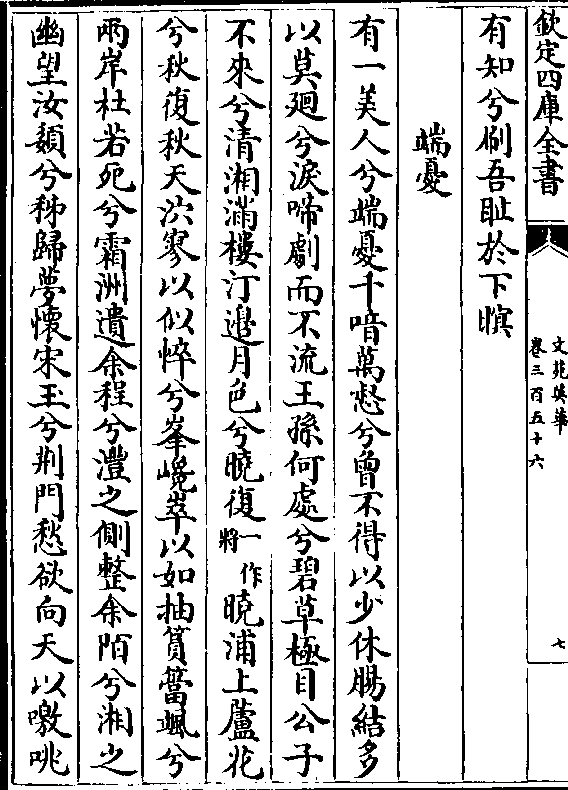 欽定四庫全書
文苑英華
卷三百五十六
七
有知兮倒吾耻於下瞋
端憂
有一美人兮端憂千喑萬愁兮曾不得以少休腸結多
以莫廻兮淚啼劇而不流王孫何處兮碧草極目公子
不來兮清湘滿樓汀邉月色兮曉復一作將曉浦上蘆花
兮秋復秋天泬寥以似悴兮峯巉崒以如抽篔簹颯兮
兩岸杜若死兮霜洲遺余程兮澧之側整余陌兮湘之
幽望汝潁兮秭歸夢懷宋玉兮荆門愁欲向天以噭咷